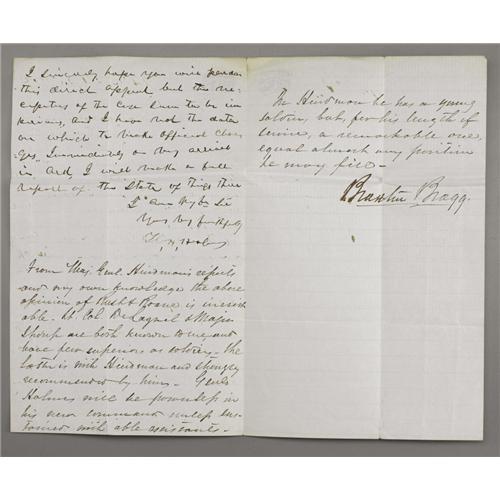 I sincerely hope you will pardon
this direct appeal, but the ne-
cessities of the case seem to be im-
perious, and I have not the data
on which to make official char
ges. Immediately on my arrival
in Ark I will make a full
report of the state of things there
I am My Dr Sir
Yours very faithfully
Th. H. Holmes
From Maj. Genl. Hindman's reports
and my own knowledge the above
opinion of Rust & Roane is
able. Lt. Col. & Major
Shoup are both known to me and
have few superiors as soldiers. The
latter is with Hindman and strongly
recommended by him. Genl
Holmes will be powerless in
his new command unless sus-
tained with able assistants.
Tho Hindman he has a young
soldier, but, for his length of
service, a remarkable one,
equal almost any position
he may fill.
Braxton Bragg.